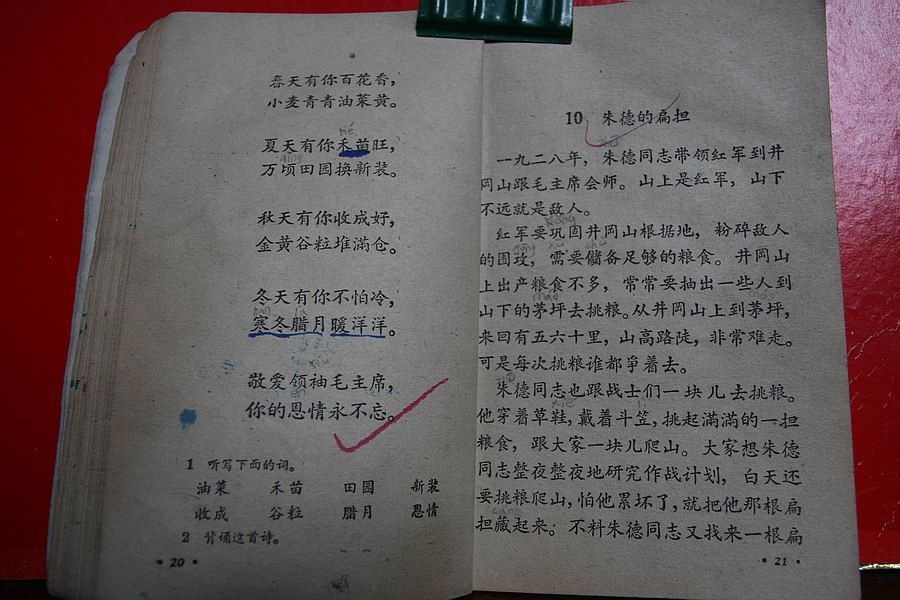 春天有你百花香，
小麦青青油菜黄。
夏天有你禾苗旺，
万顷田园换新装。
秋天有你收成好，
金黄谷粒堆满仓。
冬天有你不怕冷，
寒冬腊月暖洋洋。
敬爱领袖毛主席，
你的恩情永不忘。
1 听写下面的词。
油菜 禾苗 田园 新装
收成 谷粒 腊月 恩情
2 背诵这首诗。
• 20 •
10 朱德的扁担
一九二八年，朱德同志带领红军到井
冈山跟毛主席会师。山上是红军，山下
不远就是敌人。
红军要巩固井冈山根据地，粉碎敌人
的围攻，需要储备足够的粮食。井冈山
上出产粮食不多，常常要抽出一些人到
山下的茅坪去挑粮。从井冈山上到茅坪，
来回有五六十里，山高路陡，非常难走。
可是每次挑粮谁都争着去。
朱德同志也跟战士们一块儿去挑粮。
他穿着草鞋，戴着斗笠，挑起满满的一担
粮食，跟大家一块儿爬山。大家想朱德
同志整夜整夜地研究作战计划，白天还
要挑粮爬山，怕他累坏了，就把他那根扁
担藏起来。不料朱德同志又找来一根扁
• 21 •